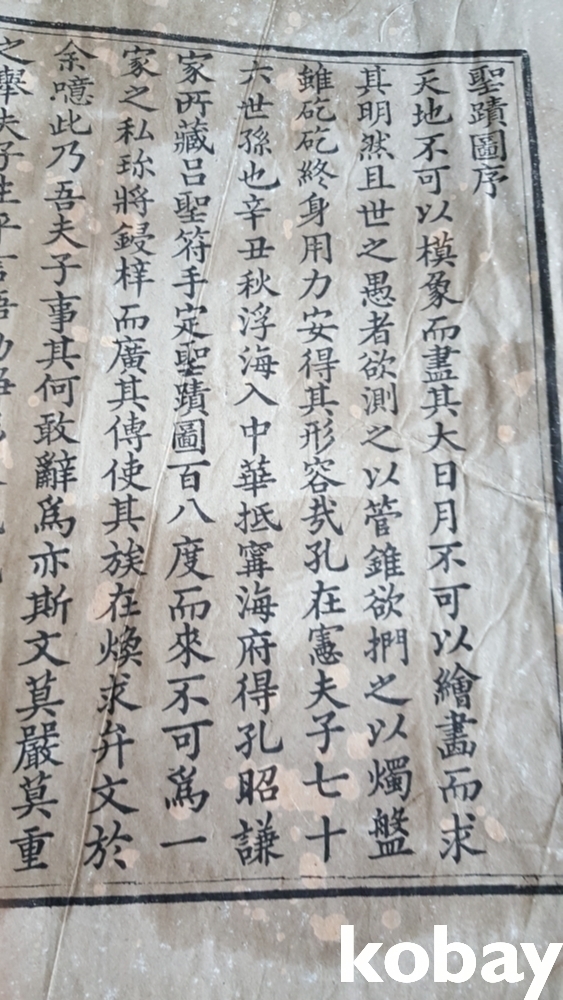 聖蹟圖序
天地不可以模象而盡其大日月不可以繪畵而求
其明然且世之愚者欲測之以管錐欲捫之以燭盤
雖矻矻終身用力安得其形容㢤孔在憲夫子七十
六世孫也辛丑秋浮海入中華抵寗海府得孔昭謙
家所藏呂聖符手定聖蹟圖百八度而來不可爲一
家之私珎將鋟梓而廣其傳使其族在煥求弁文於
余噫此乃吾夫子事其何敢辭爲亦斯文莫嚴莫重
之擧夫子生平言
kobay